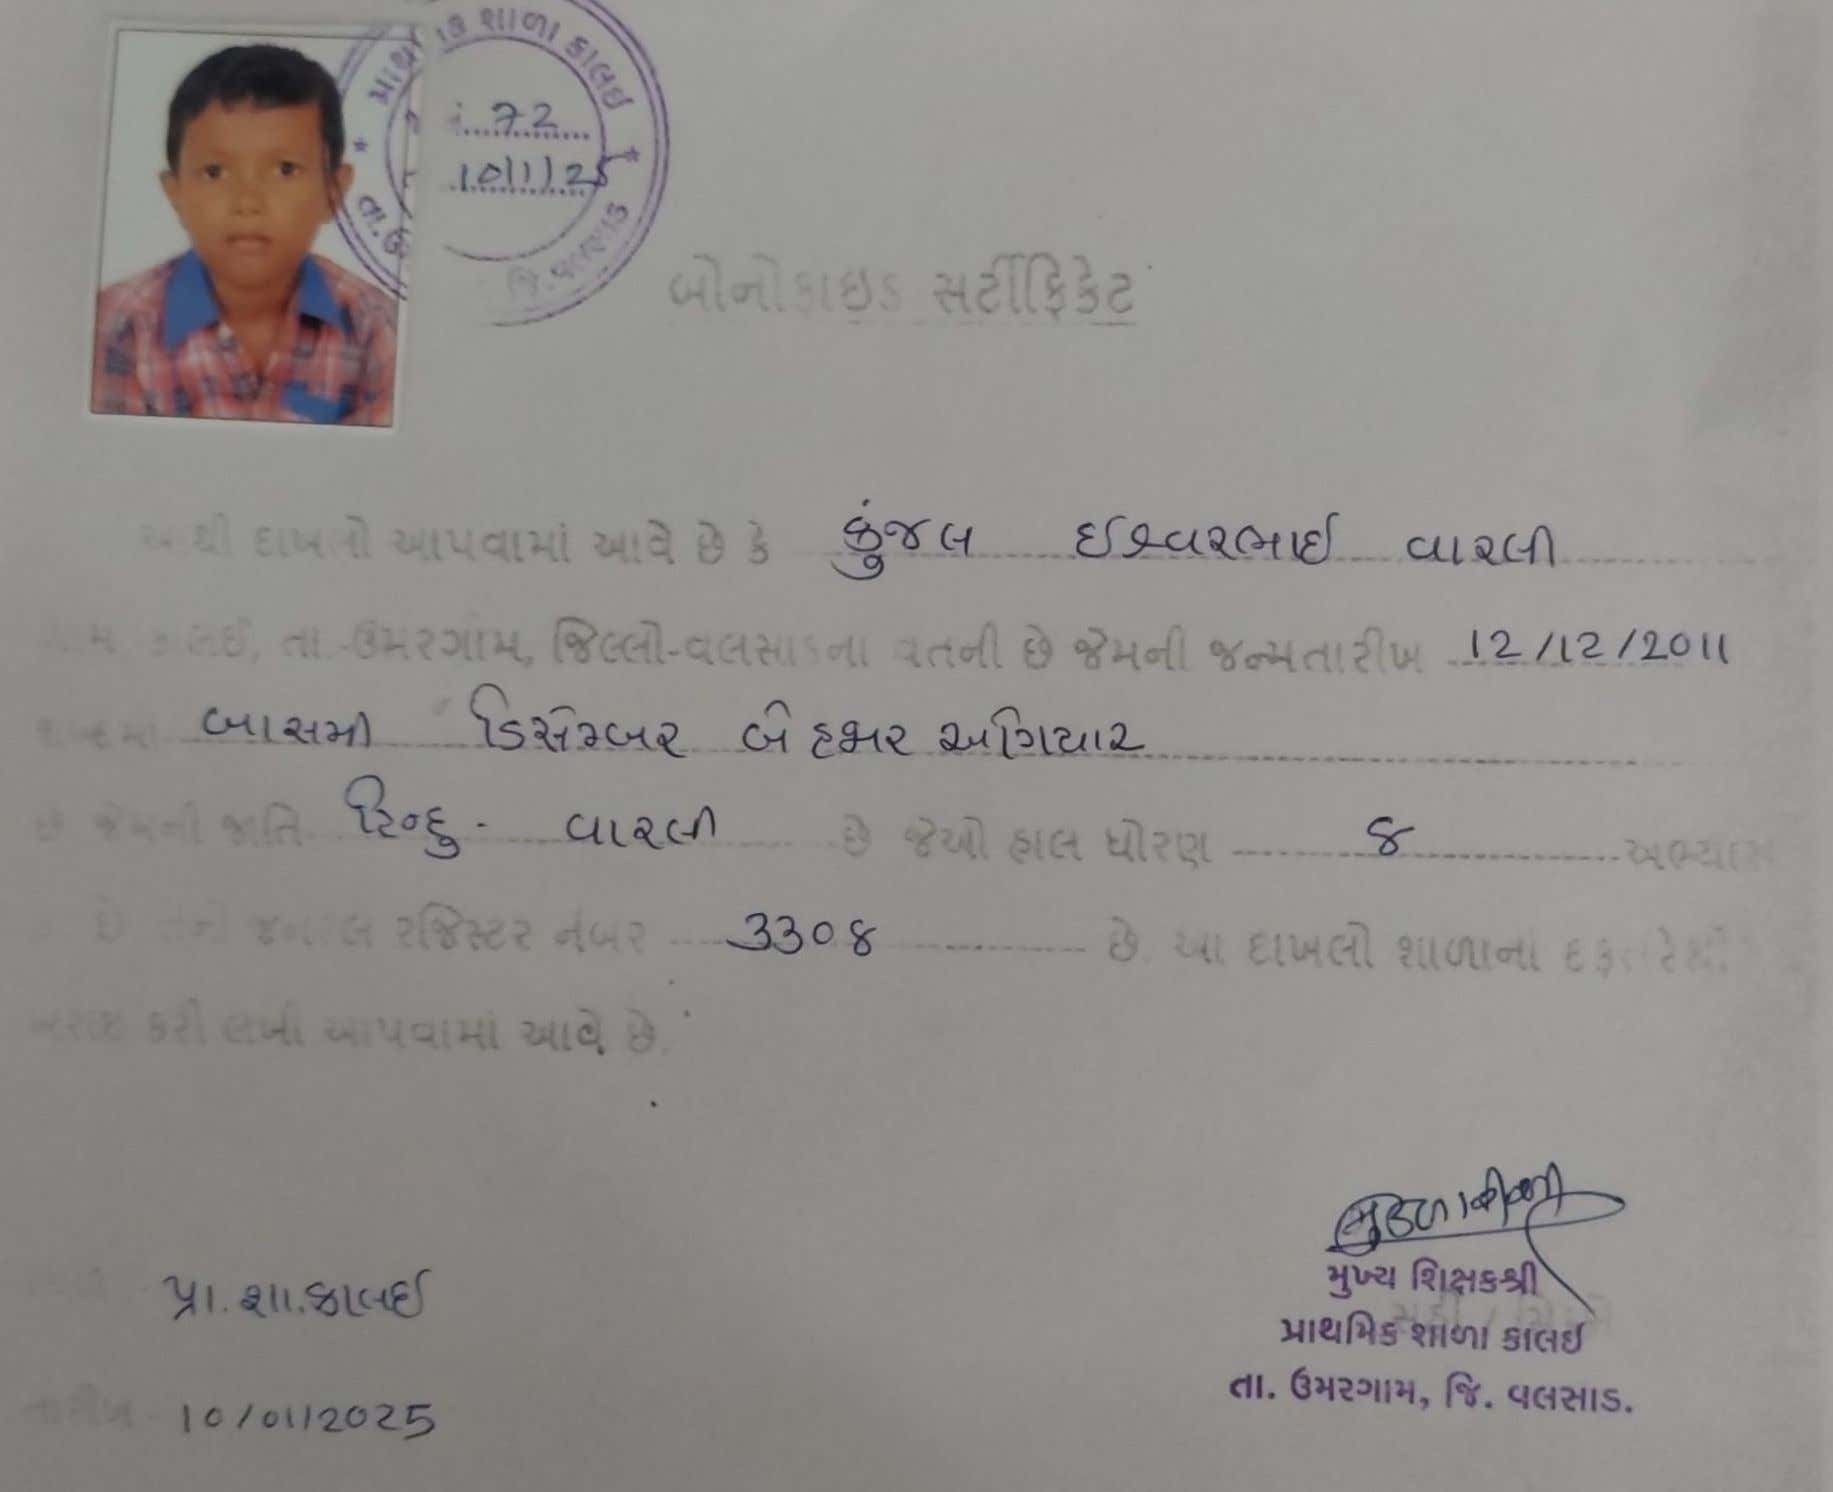 પ્રાથમિક શાળા કાલઇ
નં. 72
10/1/25
તા. ઉ
જિ. વલસાડ
બોનોફાઇડ સર્ટીફિકેટ
આથી દાખલો આપવામાં આવે છે કે કુંજલ ઈશ્વરભાઈ વારલી
ગામ કાલઈ, તા.-ઉમરગામ, જિલ્લો-વલસાડના વતની છે જેમની જન્મતારીખ 12/12/2011
શબ્દમાં બારમી ડિસેમ્બર બે હજાર અગિયાર
છે જેમની જાતિ હિન્દુ - વારલી છે જેઓ હાલ ધોરણ ૪ અભ્યાસ
છે તેનો જનરલ રજિસ્ટર નંબર 3308 છે. આ દાખલો શાળાના દફતરેથી
ખરાઇ કરી લખી આપવામાં આવે છે.
મુખ્ય શિક્ષકશ્રી
પ્રા. શા. કાલઈ
પ્રાથમિક શાળા કાલઇ
તા. ઉમરગામ, જિ. વલસાડ.
તારીખ 10/01/2025